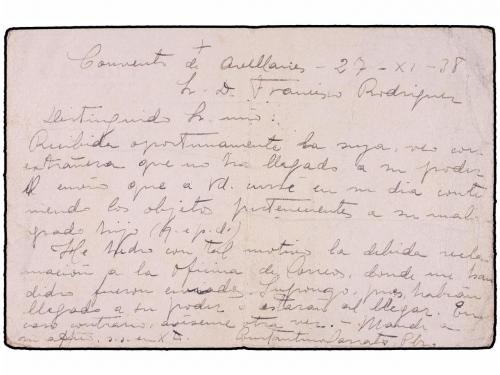 +
Convento de Avellanes - 27 - XI - 38
Sr. D. Francisco Rodriguez
Distinguido Sr. mio:
Recibida oportunamente la suya, veo con
extrañeza que no ha llegado a su poder
el envio que a Vd. cursé en su dia conte
niendo los objetos pertenecientes a su malo
grado hijo (q.e.p.d.)
He hecho con tal motivo la debida recla
mación a la Oficina de Correos, donde me han
dicho fueron enviados. Supongo, pues, habrán
llegado a su poder o estarán al llegar. En
caso contrario, aviseme otra vez. - Mande a
su afmo. s.s. en